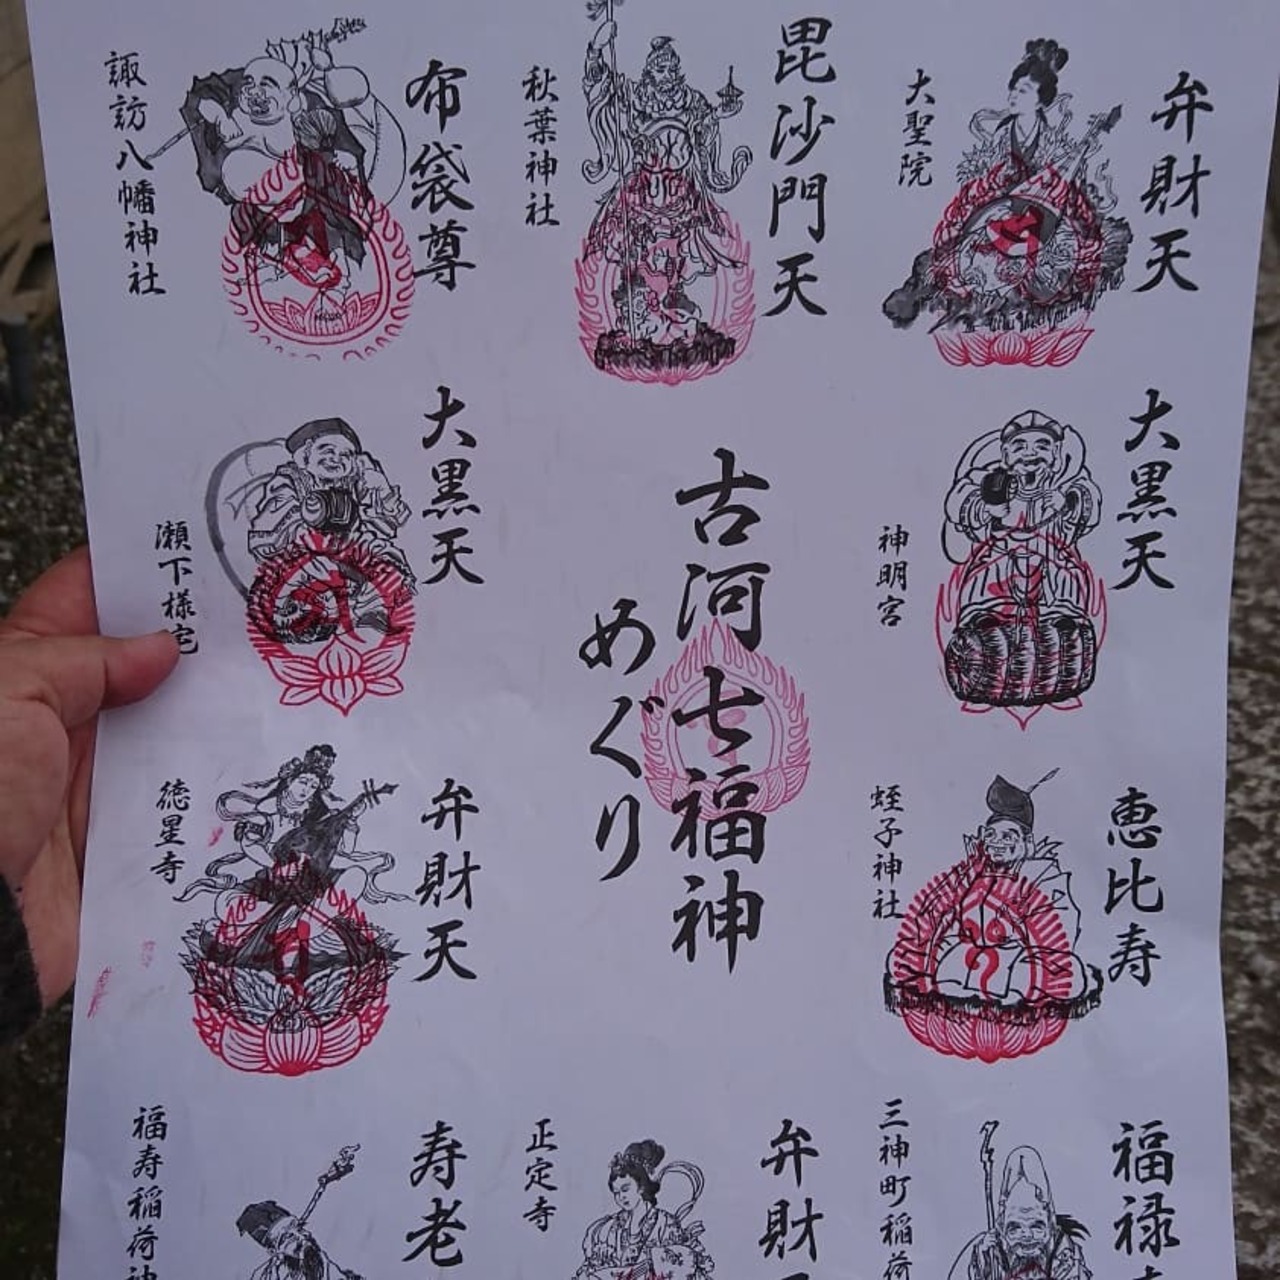 弁財天
大聖院
毘沙門天
秋葉神社
布袋尊
諏訪八幡神社
大黒天
神明宮
古河七福神
めぐり
大黒天
瀬下様宅
恵比寿
蛭子神社
弁財天
徳星寺
福禄
三神町稲荷
弁財天
正定寺
寿老
福寿稲荷神